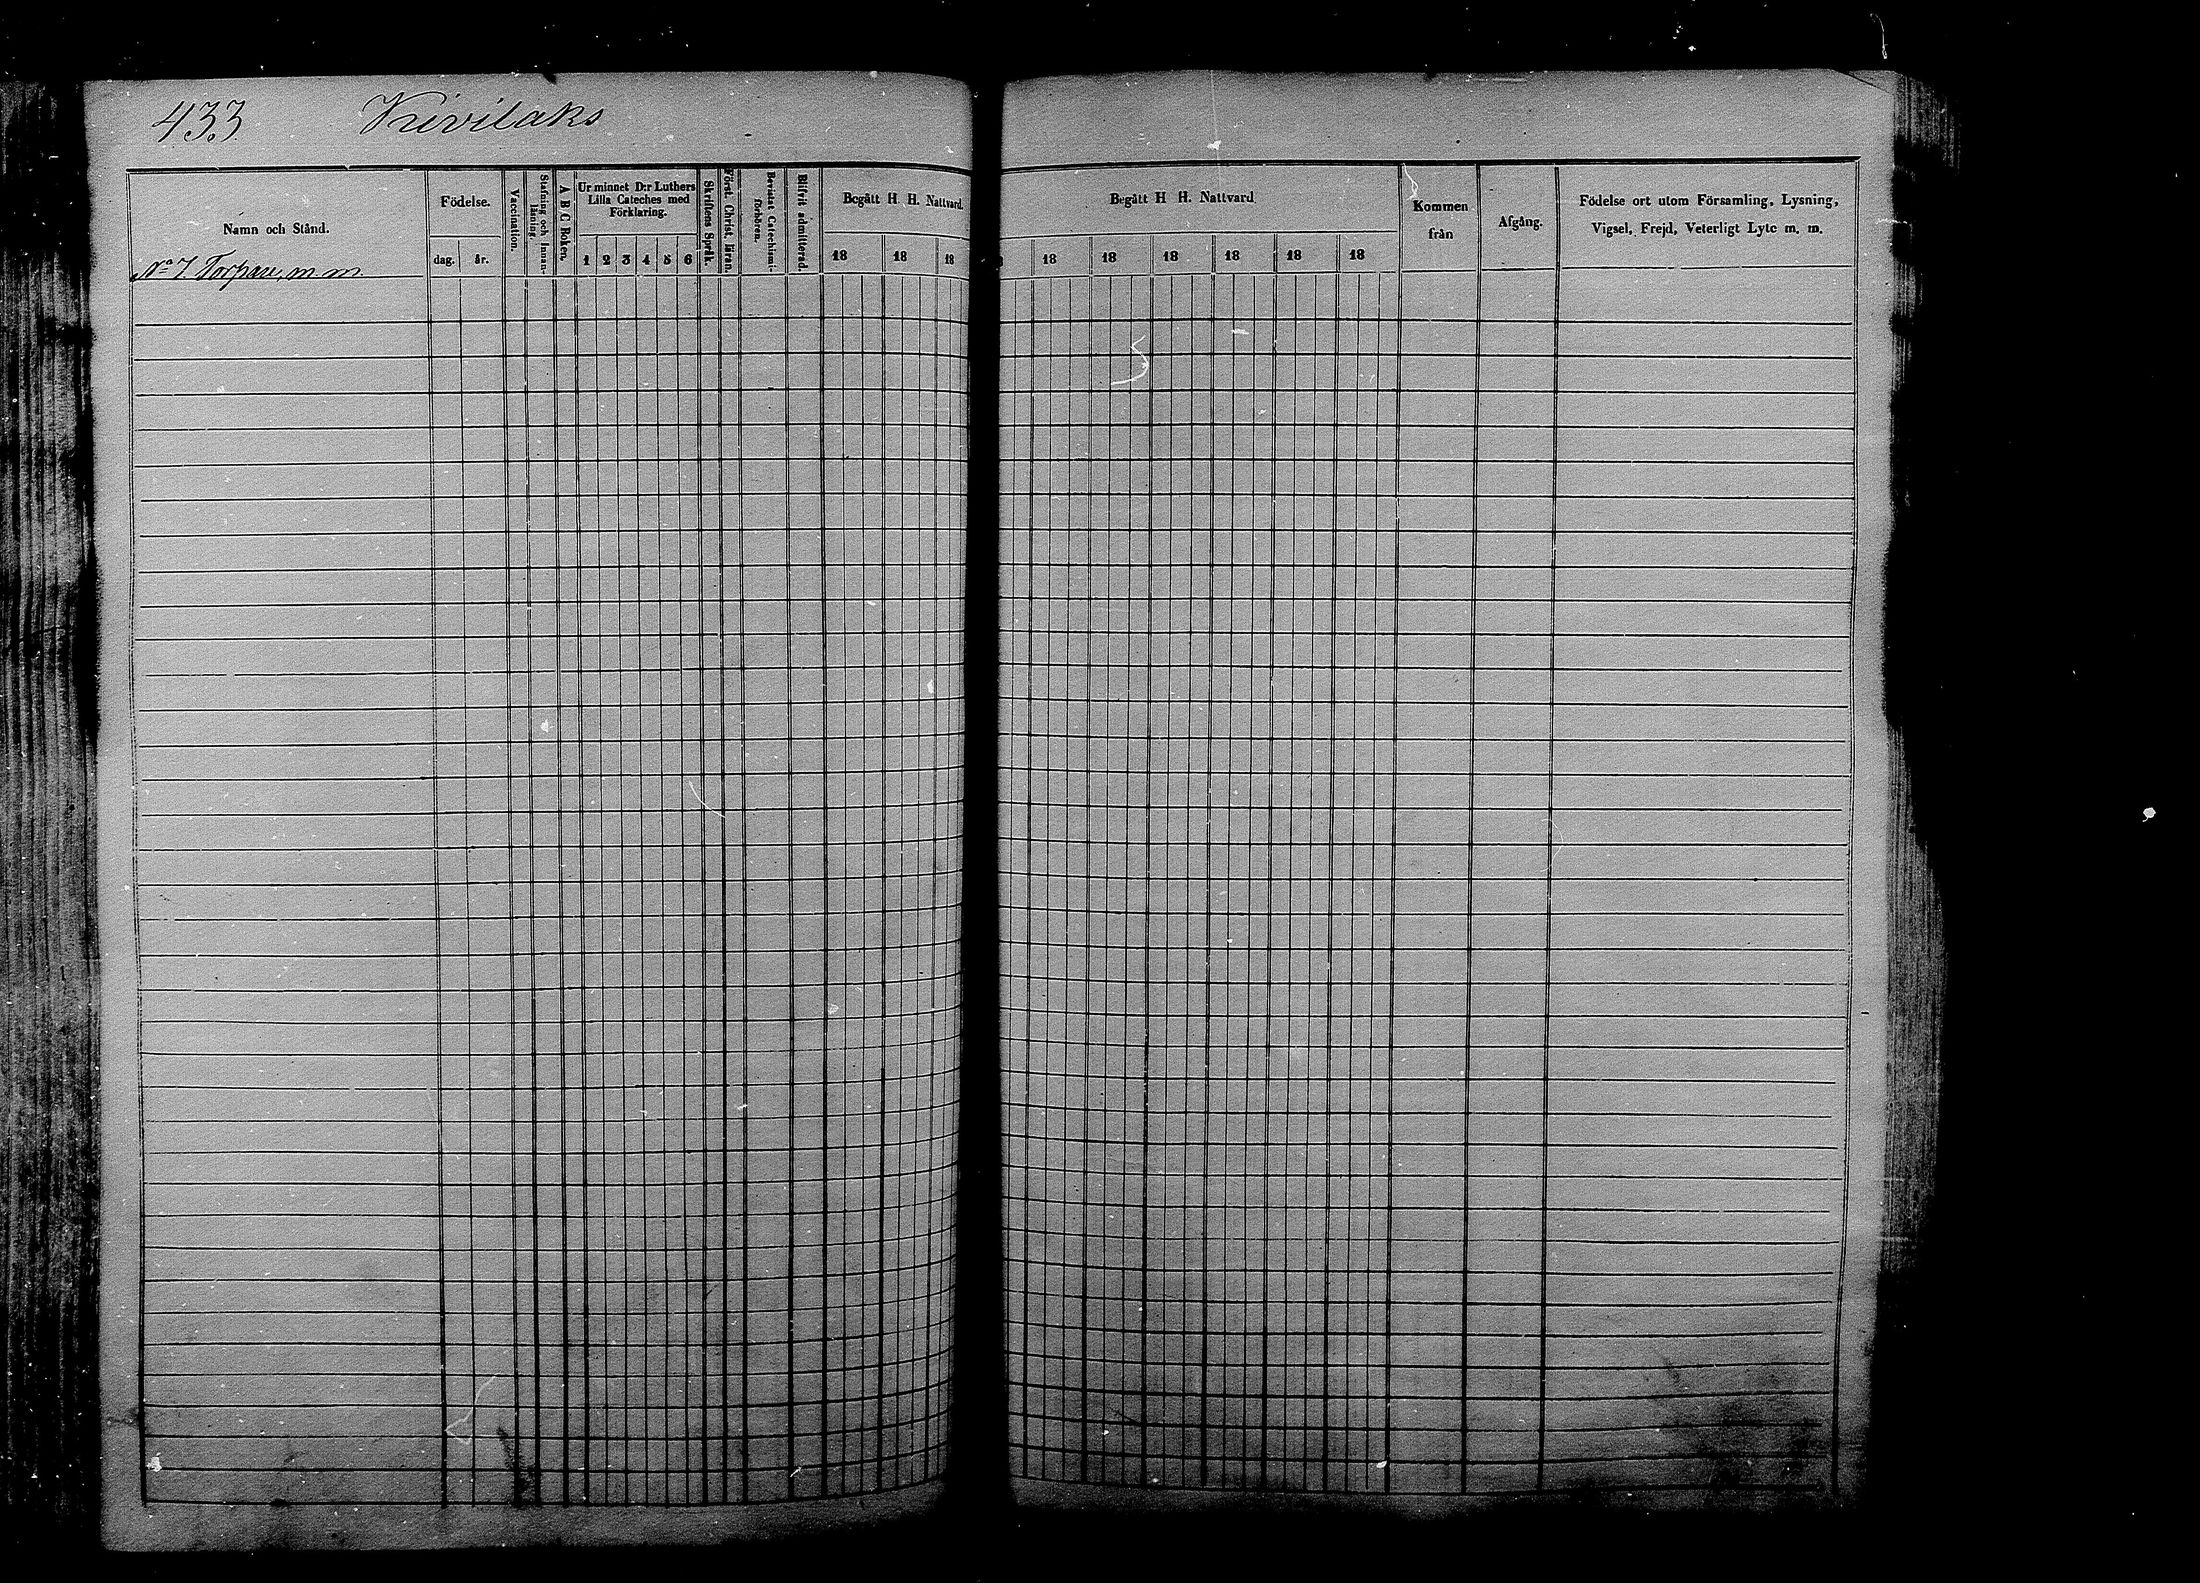 433 Kivilaks
Namn och Stånd.
Födelse.
dag. år.
Vaccination.
Stafning och Innan-
läsning.
A B C Boken.
Ur minnet D:r Luthers
Lilla Cateches med
Förklaring.
1 2 3 4 5 6
Skriftens Språk.
Först. Christ. läran.
Bevistat Catechismi-
förhören.
Blifvit admitterad.
Begått H. H. Nattvard.
18 18 18
Begått H. H. Nattvard.
18 18 18 18 18 18
Kommen
från
Afgång.
Födelse ort utom Församling, Lysning,
Vigsel, Frejd, Veterligt Lyte m. m.
No 7. Torpare, m. m.